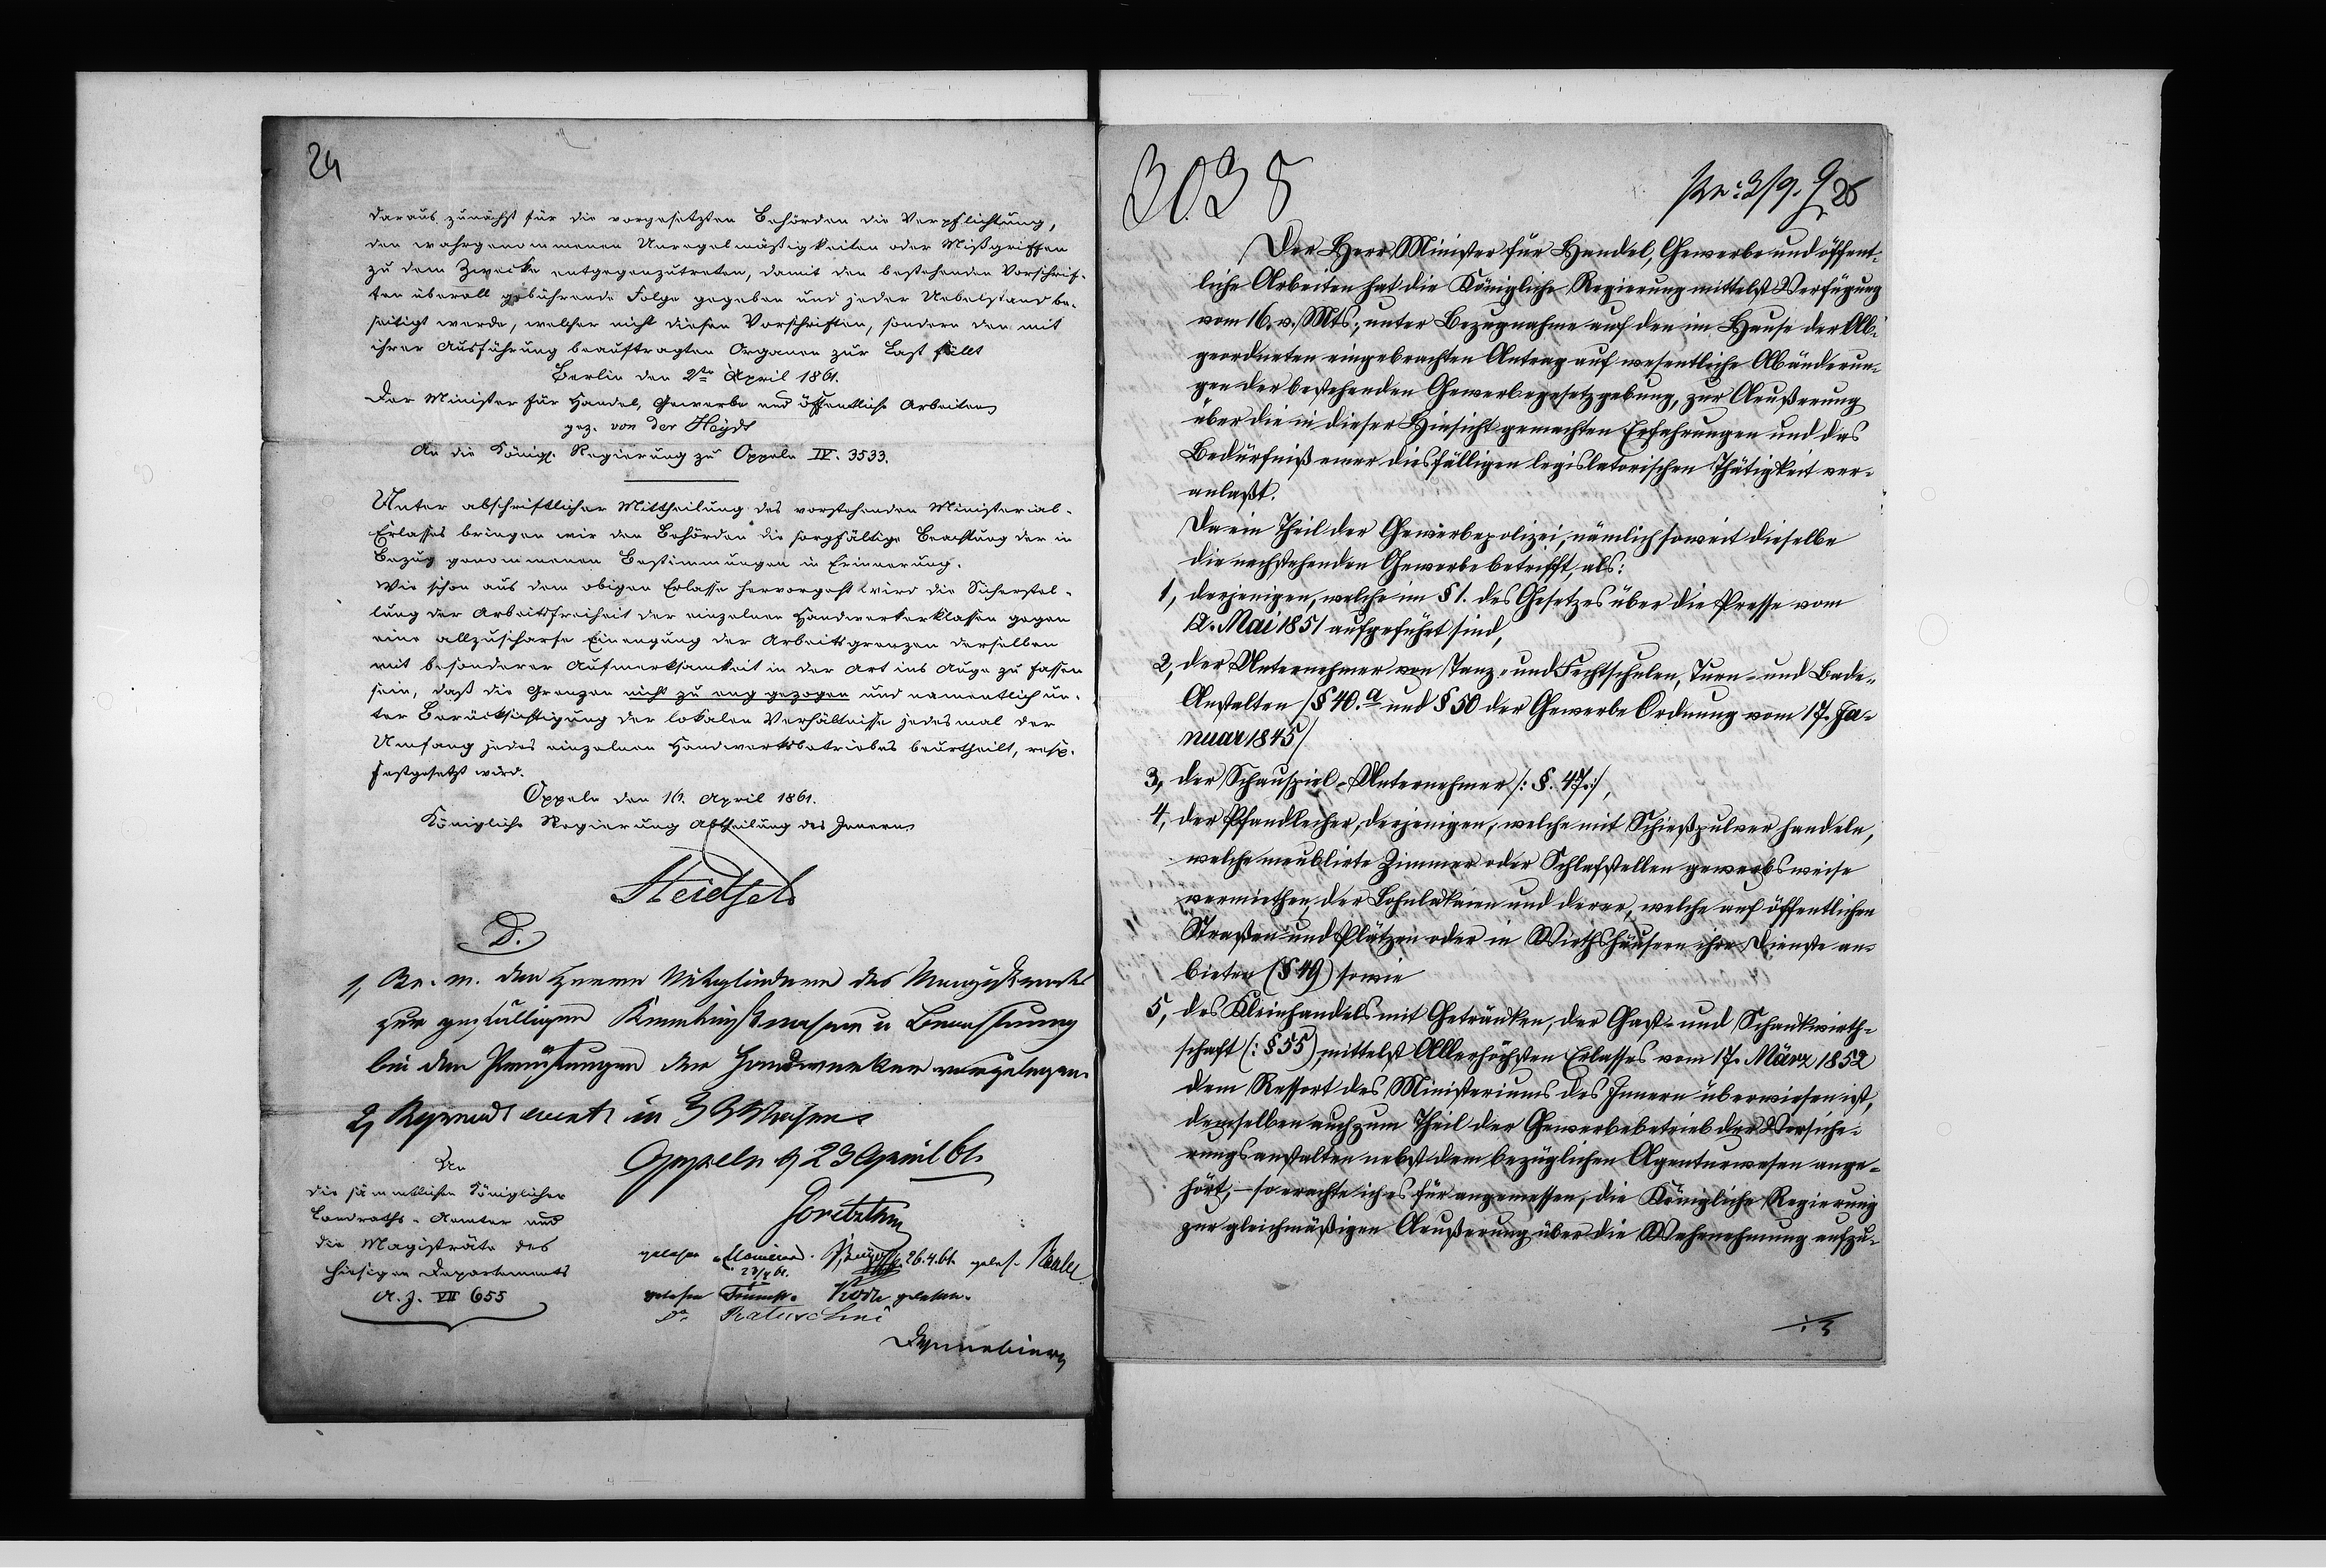 24
daraus zunächst für die vorgesetzten Behörden die Verpflichtung,
den wahrgenommenen Unregelmäßigkeiten oder Mißgriffen
zu dem Zwecke entgegenzutreten, damit den bestehenden Vorschrif-
ten überall gebührende Folge gegeben und jeder Uebelstand be-
seitigt werde, welcher nicht diesen Vorschriften, sondern den mit
ihrer Ausführung beauftragten Organen zur Last fällt
Berlin den 2ten April 1861.
Der Minister für Handel, Gewerbe und öffentliche Arbeiten
gez. von der Heydt
An die Königl. Regierung zu Oppeln IV. 3533.
Unter abschriftlicher Mittheilung des vorstehenden Ministerial-
Erlasses bringen wir den Behörden die sorgfältige Beachtung der in
Bezug genommenen Bestimmungen in Erinnerung.
Wie schon aus dem obigen Erlasse hervorgeht wird die Sicherstel-
lung der Arbeitsfreiheit der einzelnen Handwerkerklassen gegen
eine allzuscharfe Einengung der Arbeitsgrenzen derselben
mit besonderer Aufmerksamkeit in der Art ins Auge zu fassen
sein, daß die Grenzen nicht zu eng gezogen und namentlich un-
ter Berücksichtigung der lokalen Verhältnisse jedesmal der
Umfang jedes einzelnen Handwerksbetriebes beurtheilt, resp.
festgesetzt wird.
Oppeln den 16. April 1861.
Königliche Regierung Abtheilung des Innern
D.
1, den Herren Mitgliedern des Magistrats
zur gefälligen Kenntnißnahme u Beachtung
bei den Prüfungen der Handwerker vorzulegen.
2, in 3 Wochen
Oppeln d 23 April 61.
An
die sämmtlichen Königlichen
Landraths-Aemter und
die Magisträte des
hiesigen Departements
A. J. VII 655
gelesen 26.4.61. geles.
23/4 61.
gelesen gelesen.
3035
25
Der Herr Minister für Handel, Gewerbe und öffent-
liche Arbeiten hat die Königliche Regierung mittelst Verfügung
vom 16. v. Mts., unter Bezugnahme auf den im Hause der Ab-
geordneten eingebrachten Antrag auf wesentliche Abänderun-
gen der bestehenden Gewerbegesetzgebung, zur Aeußerung
über die in dieser Hinsicht gemachten Erfahrungen und das
Bedürfniß einer diesfälligen legislatorischen Thätigkeit ver-
anlaßt.
Da ein Theil der Gewerbepolizei, nämlich soweit dieselbe
die nachstehenden Gewerbe betrifft, als:
1, derjenigen, welche im § 1. des Gesetzes über die Presse vom
12. Mai 1851 aufgeführt sind,
2, der Unternehmer von Tanz- und Fechtschulen, Turn- und Bade-
Anstalten /§ 40.a und § 50 der Gewerbe Ordnung vom 17. Ja-
nuar 1845/
3, der Schauspiel-Unternehmer /: §. 47:/,
4, der Pfandleiher, derjenigen, welche mit Schießpulver handeln,
welche meublirte Zimmer oder Schlafstellen gewerbsweise
vermiethen, der Lohnlakaien und derer, welche auf öffentlichen
Straßen und Plätzen oder in Wirthshäusern ihre Dienste an-
bieten (§ 49) sowie
5, des Kleinhandels mit Getränken, der Gast- und Schankwirth-
schaft (: § 55) mittelst Allerhöchsten Erlasses vom 17. März 1852
dem Ressort des Ministeriums des Innern überwiesen ist,
demselben auch zum Theil der Gewerbebetrieb der Versiche-
rungsanstalten nebst dem bezüglichen Agenturwesen ange-
hört, – so erachte ich es für angemessen, die Königliche Regierung
zur gleichmäßigen Aeußerung über die Wahrnehmung aufzu-